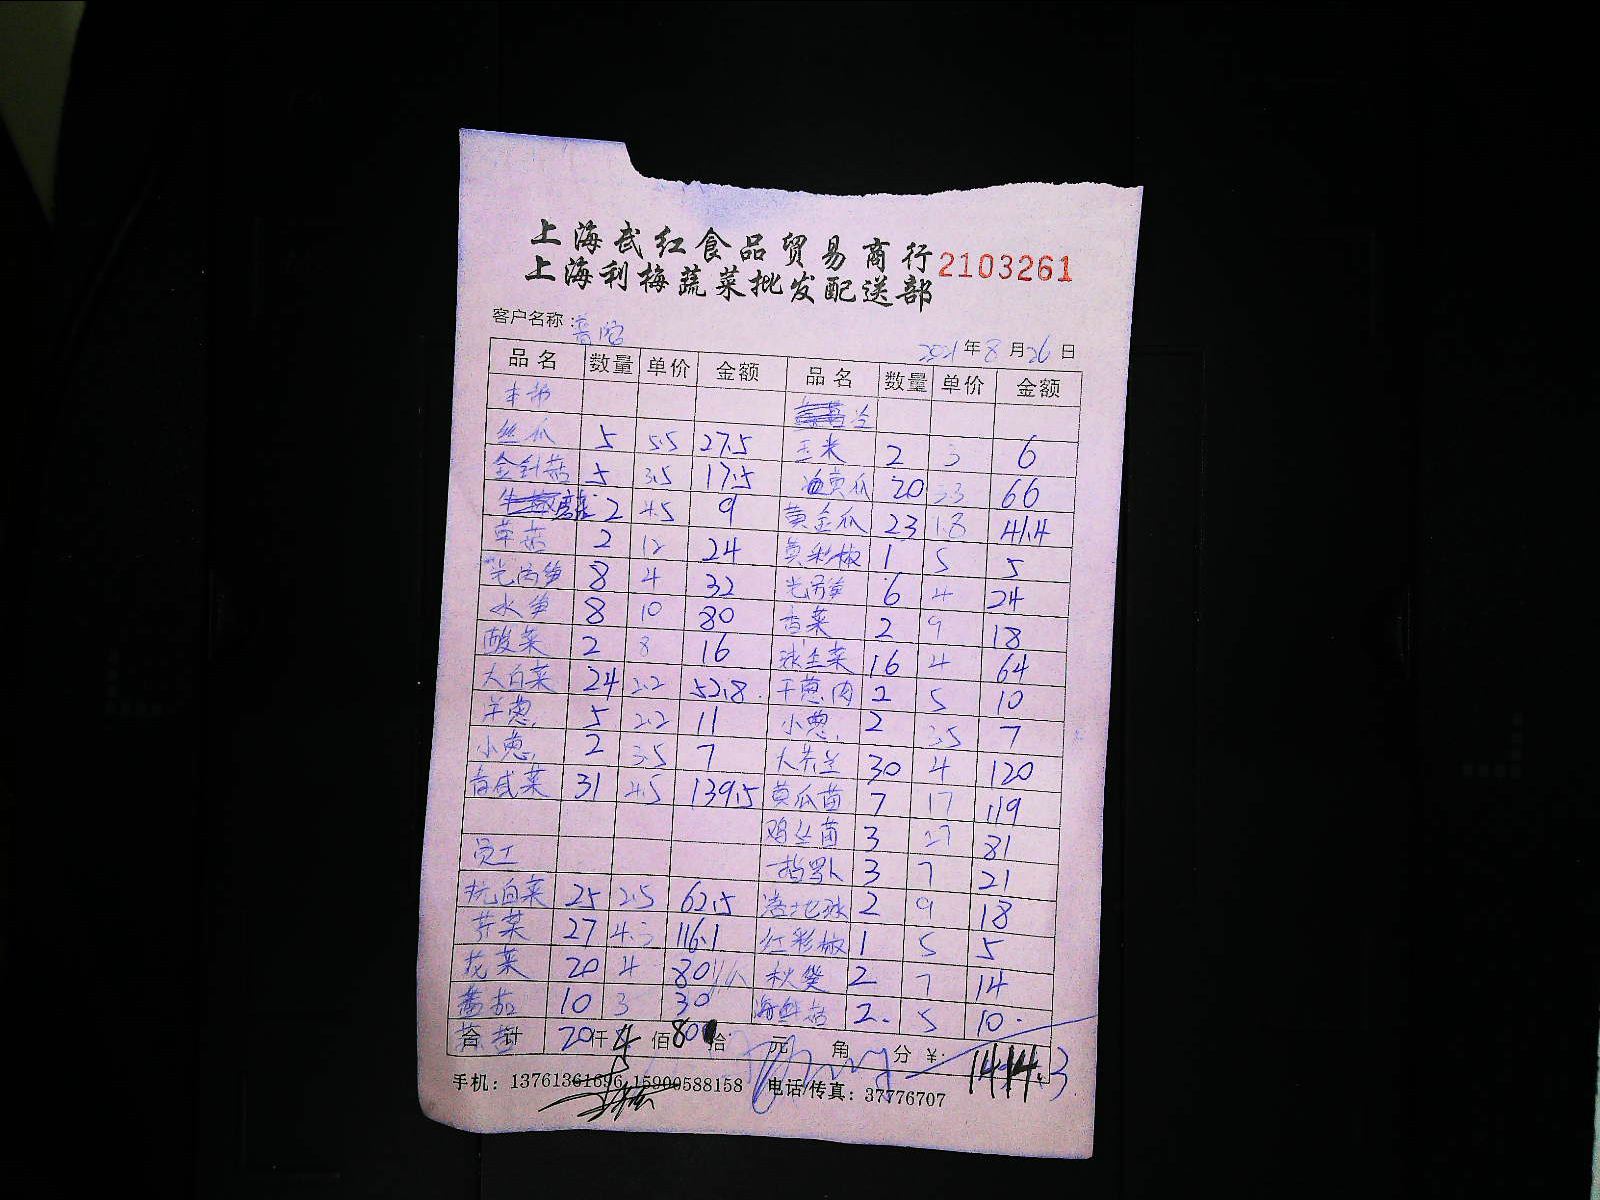 上海武红食品贸易商行
上海利梅蔬菜批发配送部
2103261
客户名称：
2021年8月26日
品名 数量 单价 金额 品名 数量 单价 金额
丝瓜 5 5.5 27.5 玉米 2 3 6
金针菇 5 3.5 17.5 黄瓜 20 3.3 66
2 4.5 9 黄金瓜 23 1.8 41.4
草菇 2 12 24 黄彩椒 1 5 5
8 4 32 6 4 24
水笋 8 10 80 香菜 2 9 18
酸菜 2 8 16 球生菜 16 4 64
大白菜 24 2.2 52.8 干葱肉 2 5 10
洋葱 5 2.2 11 小葱 2 3.5 7
小葱 2 3.5 7 大芥兰 30 4 120
青咸菜 31 4.5 139.5 黄瓜苗 7 17 119
鸡丝菌 3 27 81
员工 3 7 21
杭白菜 25 2.5 62.5 2 9 18
芹菜 27 4.3 116.1 红彩椒 1 5 5
花菜 20 4 80 秋葵 2 7 14
蕃茄 10 3 30 海鲜菇 2 5 10
合计 20 仟 4 佰 80 拾 元 角 分 ¥: 1414.3
手机：13761361696 15900588158 电话/传真：37776707